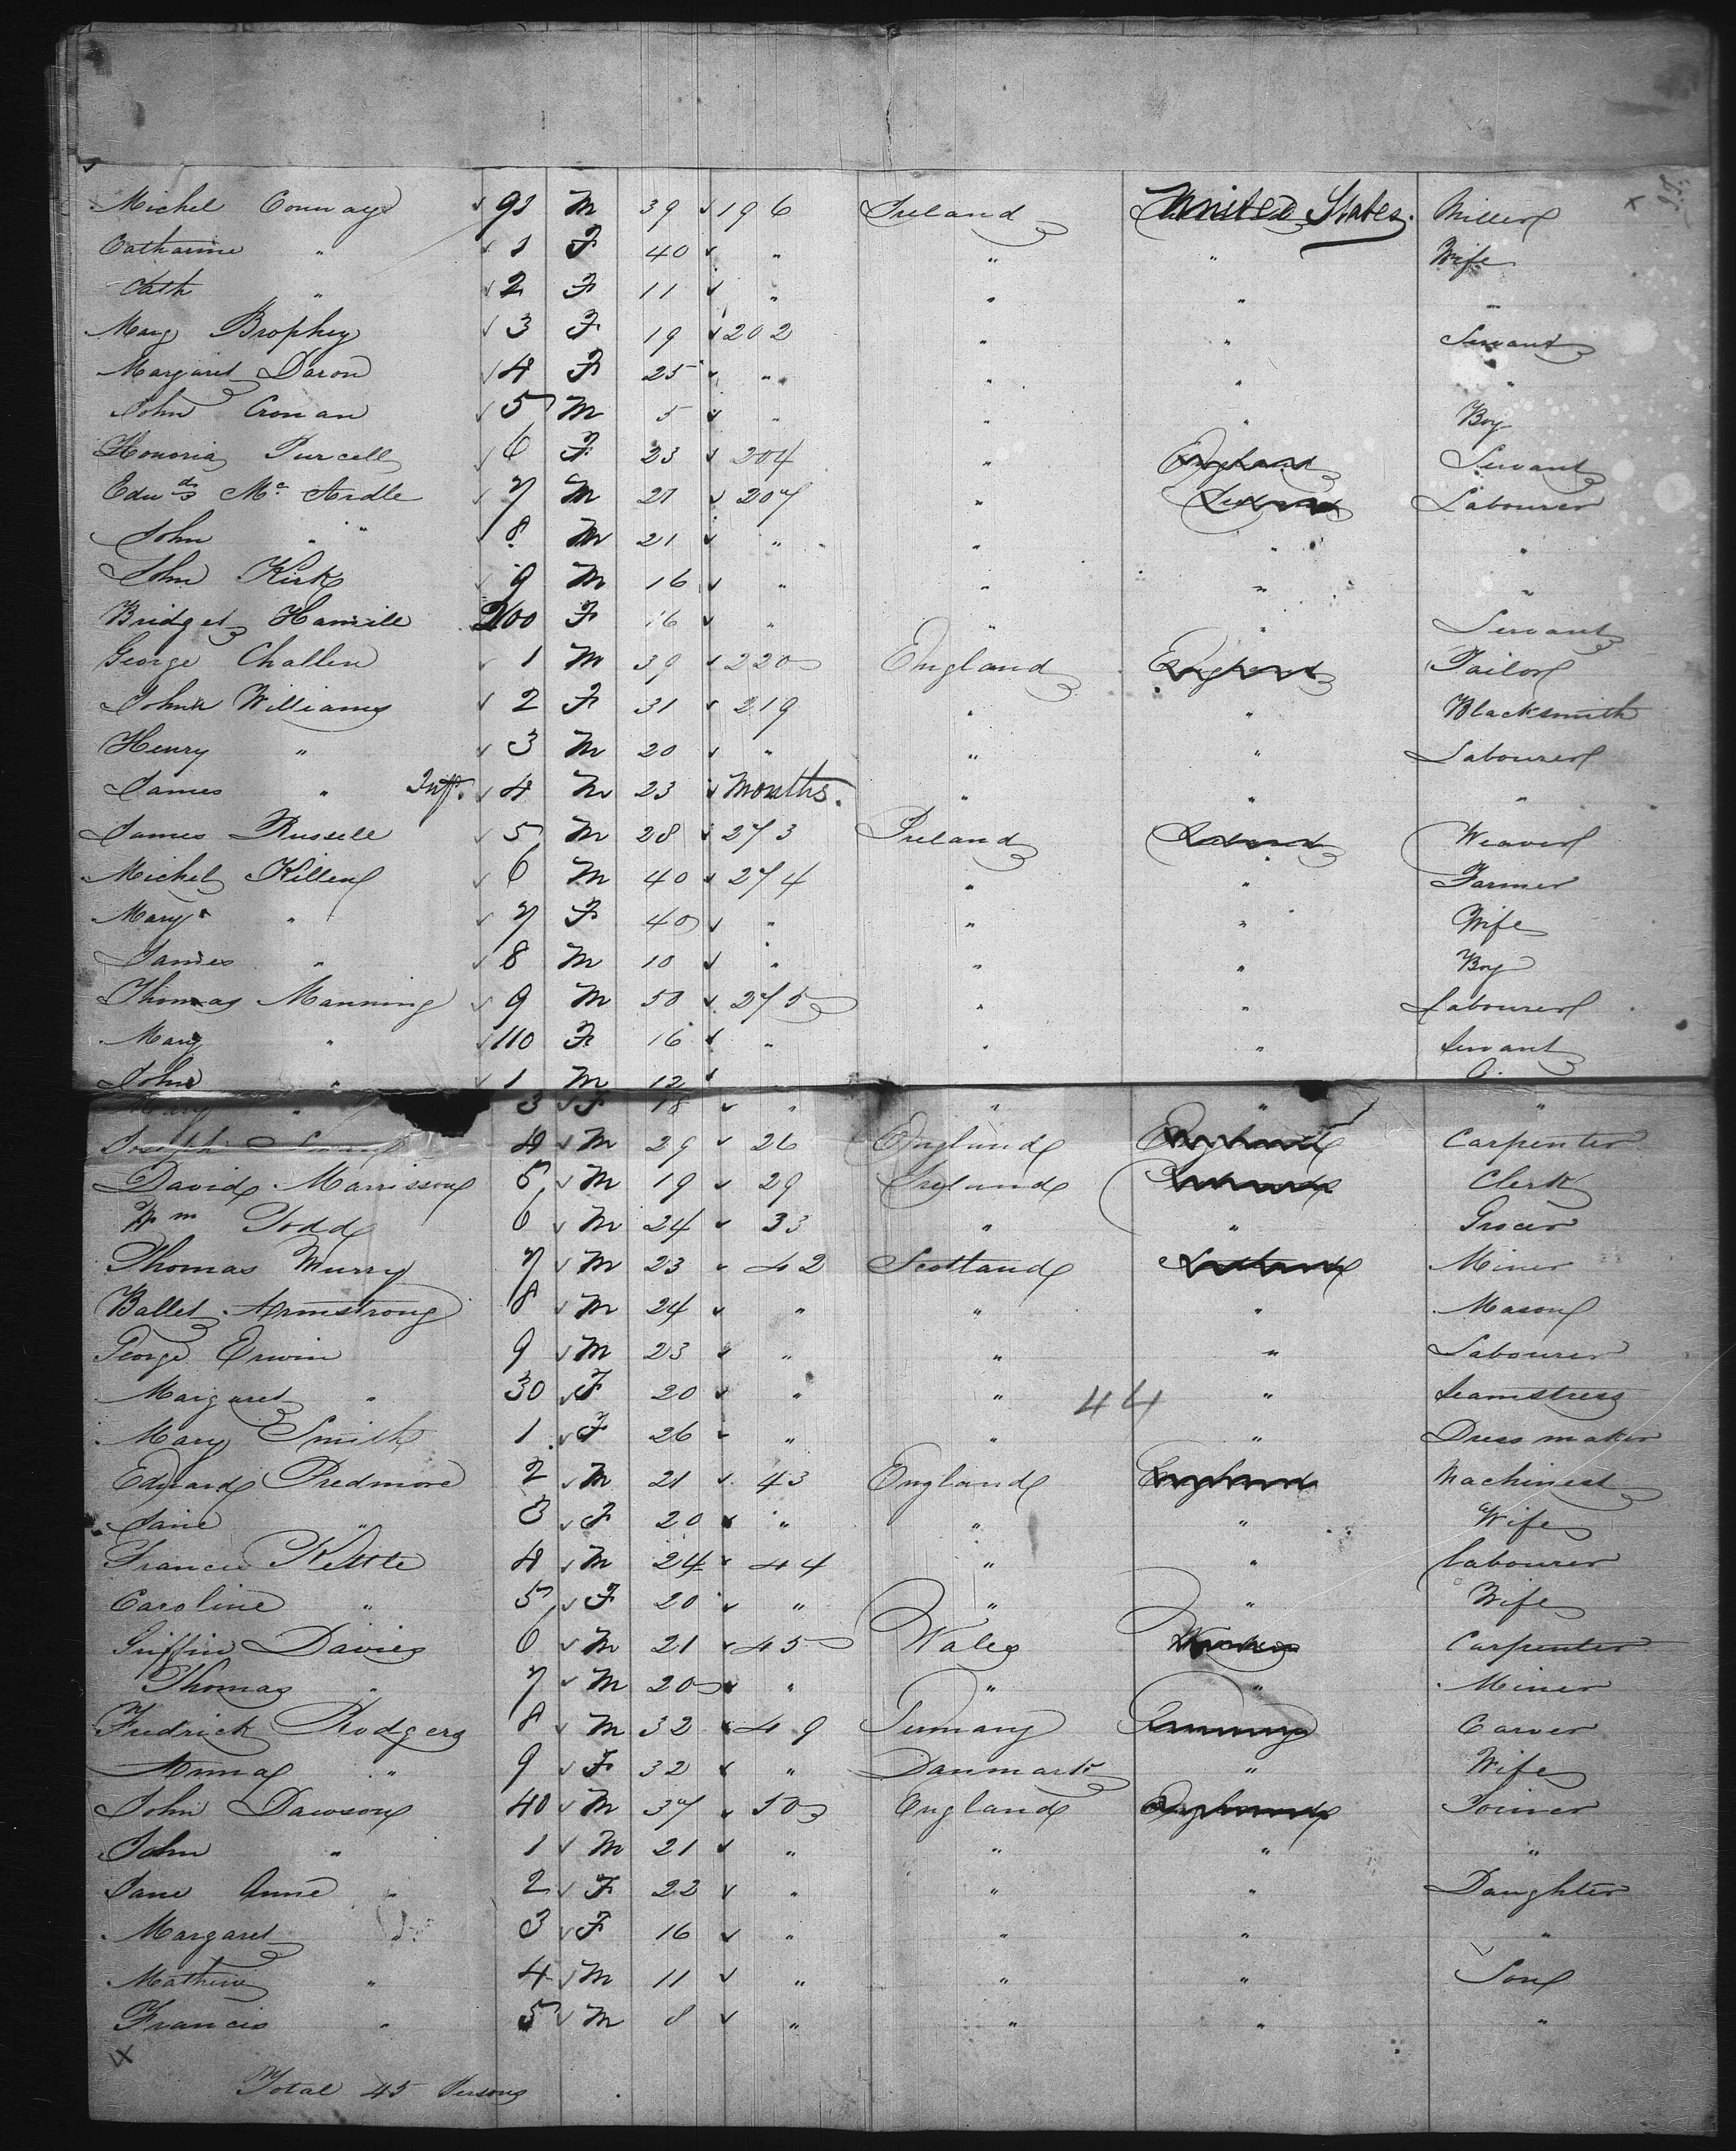 Michel Conway 91 M 39 196 Ireland United States. Miller
Catharine " 1 F 40 " " " Wife
Cath " 2 F 11 " " " "
Mary Brophey 3 F 19 202 " " Servant
Margaret Daron 4 F 25 " " " "
John Cronan 5 M 5 " " " Boy
Honoria Purcell 6 F 23 204 " England Servant
Edwds Mc Ardle 7 M 21 207 " Labourer
John " " 8 M 21 " " " "
John Kirk 9 M 16 " " " "
Bridget Hamill 200 F 16 " " " Servant
George Challen 1 M 39 220 England England Tailor
John Williams 2 F 31 219 " " Blacksmith
Henry " 3 M 20 " " " Labourer
James " Inft. 4 M 23 Months. " " "
James Russell 5 M 28 273 Ireland Weaver
Michel Killen 6 M 40 274 " " Farmer
Mary " 7 F 40 " " " Wife
James " 8 M 10 " " " Boy
Thomas Manning 9 M 50 275 " " Labourer
Mary " 110 F 16 " " " Servant
John " 1 M 12
Mary " 3 F 18 " " " "
Joseph 4 M 29 26 England England Carpenter
David Marrisson 5 M 19 29 Ireland Clerk
Wm Todd 6 M 24 33 " " Grocer
Thomas Murry 7 M 23 42 Scotland Scotland Miner
Ballet Armstrong 8 M 24 " " " Mason
George Erwin 9 M 23 " " " Labourer
Margaret " 30 F 20 " " 44 " Seamstress
Mary Smith 1 F 26 " " " Dress maker
Edward Predmore 2 M 21 43 England England Machinest
Jane " 3 F 20 " " " Wife
Francis Kettle 4 M 24 44 " " Labourer
Caroline " 5 F 20 " " " Wife
Griffin Davies 6 M 21 45 Wales Wales Carpenter
Thomas " 7 M 20 " " " Miner
Fredrick Rodgers 8 M 32 49 Germany Germany Carver
Anna " 9 F 32 " Danmark " Wife
John Dawson 40 M 37 50 England England Joiner
John " 1 M 21 " " " "
Jane Anne " 2 F 22 " " " Daughter
Margaret " 3 F 16 " " " "
Mathew " 4 M 11 " " " Son
Francis " 5 M 8 " " " "
Total 45 Persons